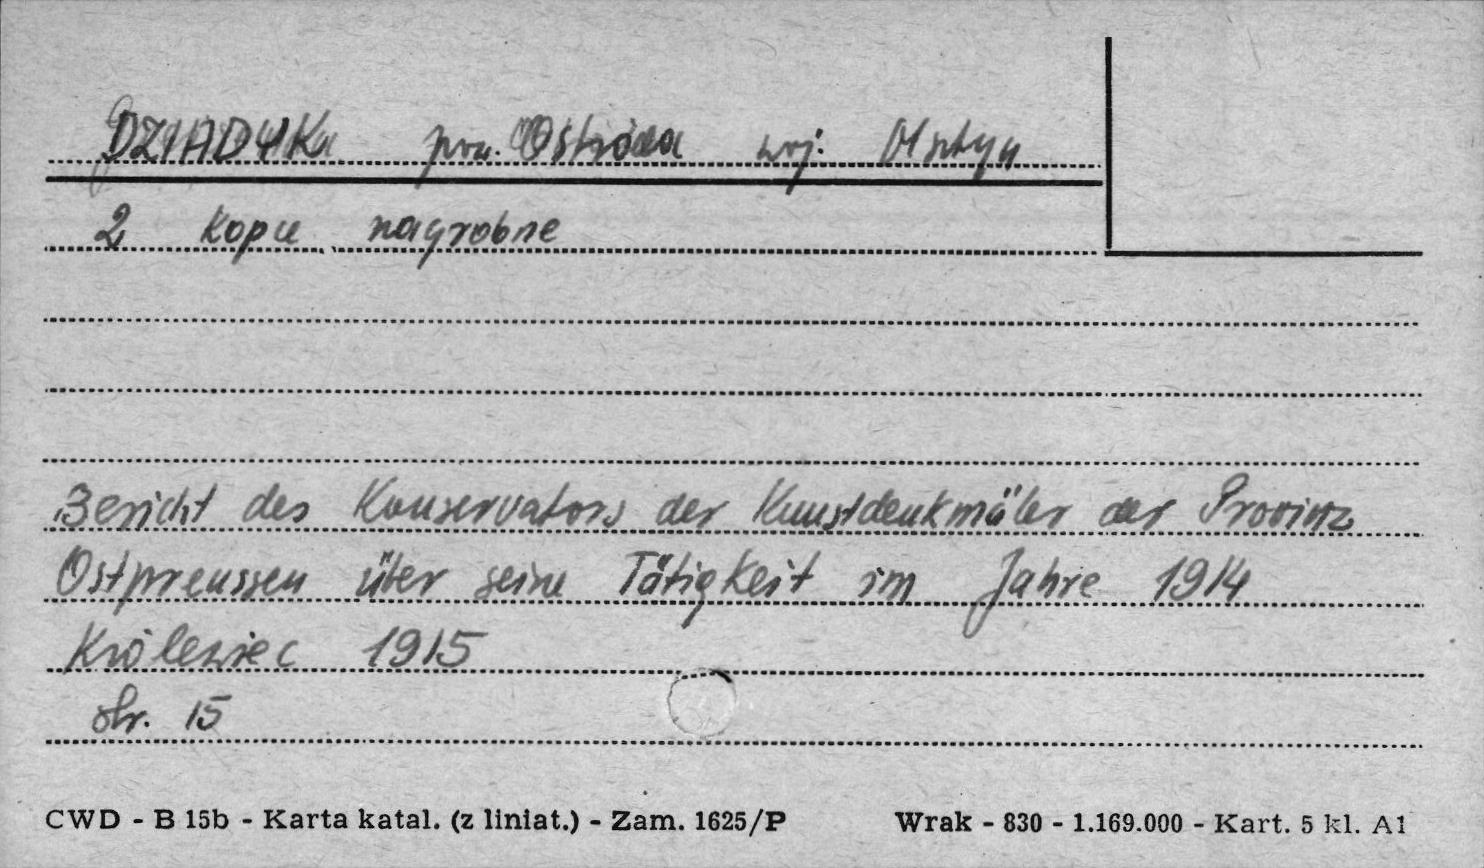 DZIADYKa pow. Ostróda woj. Olsztyn
2 kopce nagrobne
Bericht des Konservators der Kunstdenkmäler der Provinz
Ostpreussen über seine Tätigkeit im Jahre 1914
Królewiec 1915
str. 15
CWD - B 15b - Karta katal. (z liniat.) - Zam. 1625/P Wrak - 830 - 1.169.000 - Kart. 5 kl. A1